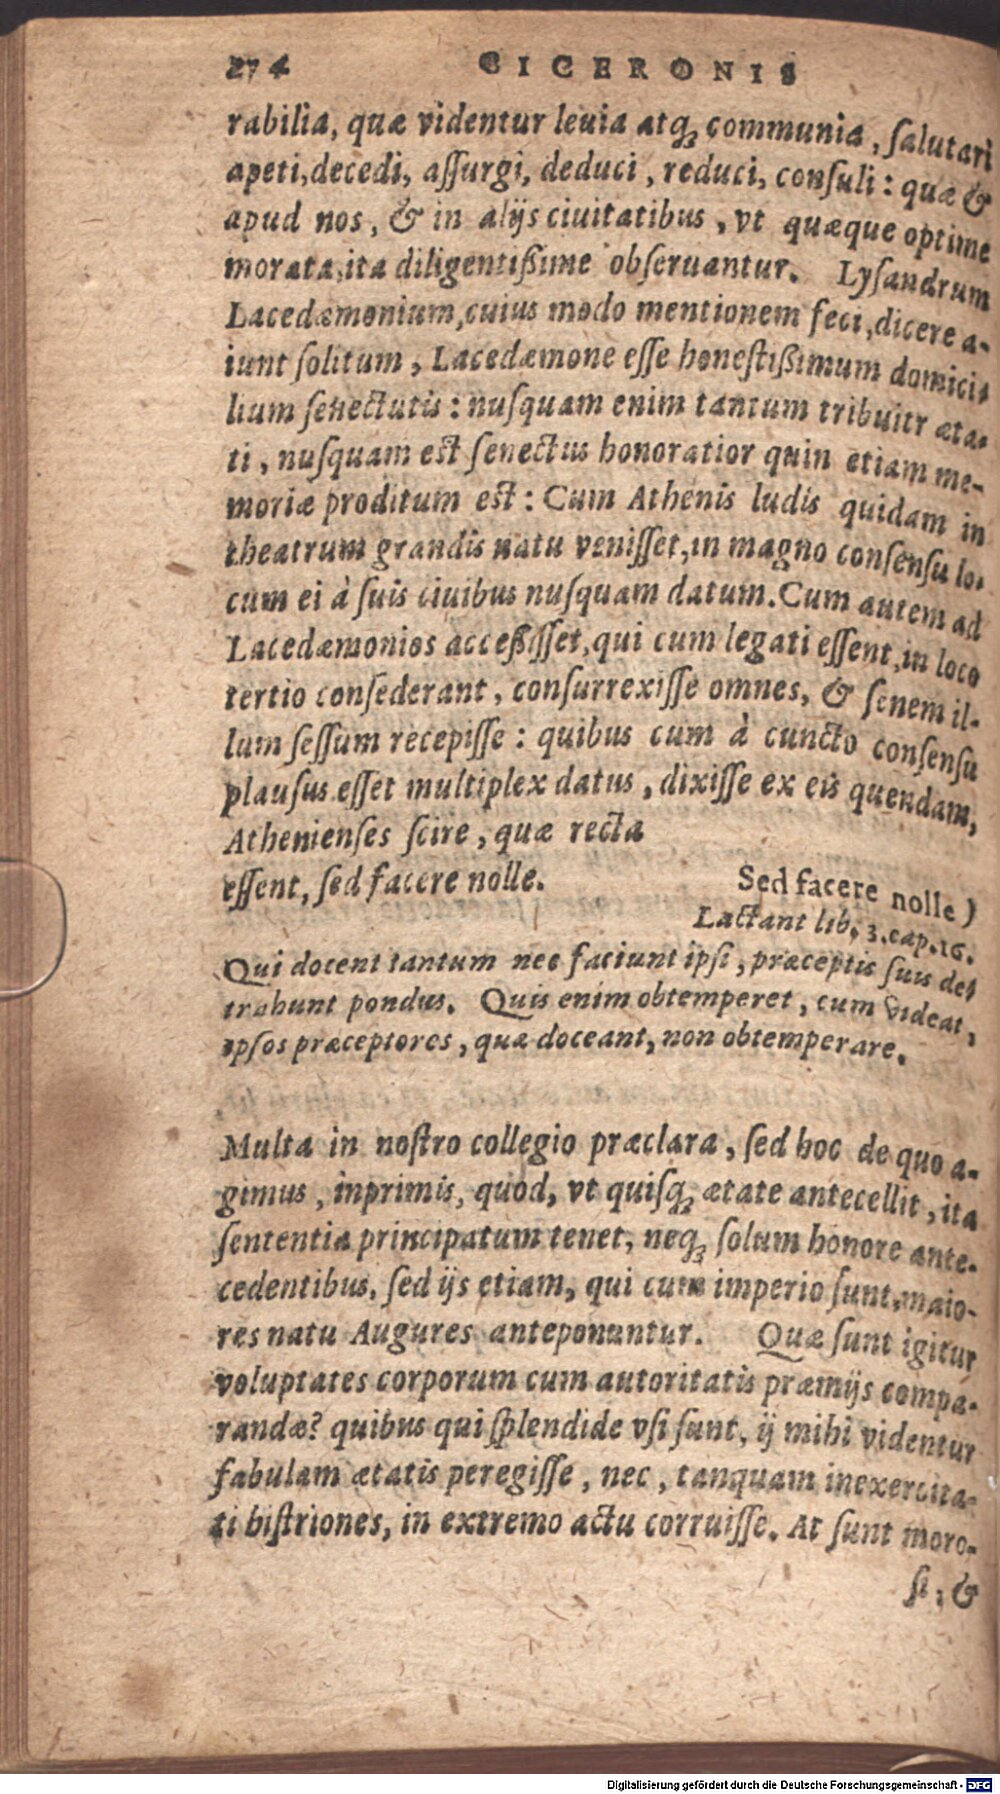 274 CICERONIS
rabilia, quæ videntur leuia atq; communia, salutari
apeti, decedi, assurgi, deduci, reduci, consuli: quæ &
apud nos, & in alijs ciuitatibus, vt quæque optime
morata, ita diligentißime obseruantur. Lysandrum
Lacedæmonium, cuius modo mentionem feci, dicere a-
iunt solitum, Lacedæmone esse honestißimum domici-
lium senectutis: nusquam enim tantum tribuitr æta-
ti, nusquam est senectus honoratior quin etiam me-
moriæ proditum est: Cum Athenis ludis quidam in
theatrum grandis natu venisset, in magno consensu lo-
cum ei à suis ciuibus nusquam datum. Cum autem ad
Lacedæmonios acceßisset, qui cum legati essent, in loco
tertio consederant, consurrexisse omnes, & senem il-
lum sessum recepisse: quibus cum à cuncto consensu
plausus esset multiplex datus, dixisse ex eis quendam,
Athenienses scire, quæ recta
essent, sed facere nolle.
Sed facere nolle)
Lactant lib. 3. cap. 16.
Qui docent tantum nec faciunt ipsi, præceptis suis de-
trahunt pondus. Quis enim obtemperet, cum videat,
ipsos præceptores, quæ doceant, non obtemperare.
Multa in nostro collegio præclara, sed hoc de quo a-
gimus, inprimis, quod, vt quisq; ætate antecellit, ita
sententia principatum tenet, neq; solum honore ante-
cedentibus, sed ijs etiam, qui cum imperio sunt, maio-
res natu Augures anteponuntur. Quæ sunt igitur
voluptates corporum cum autoritatis præmijs compa-
randæ? quibus qui splendide vsi sunt, ij mihi videntur
fabulam ætatis peregisse, nec, tanquam inexercita-
ti histriones, in extremo actu corruisse. At sunt moro-
si, &
Digitalisierung gefördert durch die Deutsche Forschungsgemeinschaft - DFG